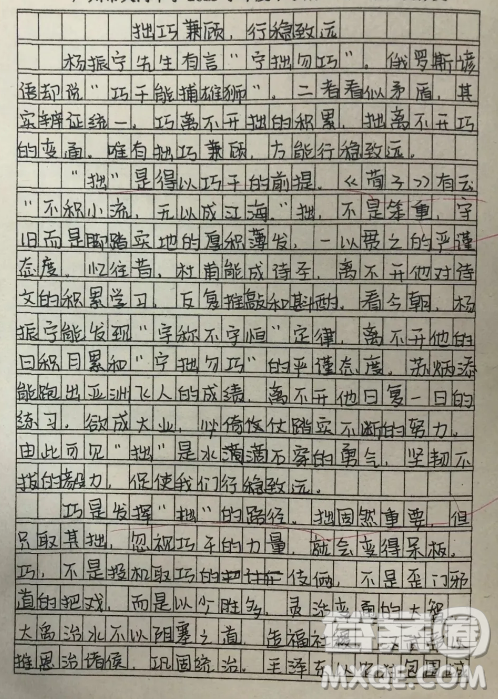 拙巧兼顾，行稳致远
杨振宁先生有言“宁拙勿巧”。俄罗斯谚
语却说“巧干能捕雄狮”。二者看似矛盾，其
实辩证统一。巧离不开拙的积累，拙离不开巧
的变通。唯有拙巧兼顾，方能行稳致远。
“拙”是得以巧干的前提。《荀子》有云
“不积小流，无以成江海。”拙，不是笨重，守
旧而是脚踏实地的厚积薄发，一以贯之的严谨
态度。忆往昔，杜甫能成诗圣，离不开他对诗
文的积累学习，反复推敲和斟酌。看今朝，杨
振宁能发现“宇称不守恒”定律，离不开他的
日积月累和“宁拙勿巧”的严谨态度，苏炳添
能跑出亚洲飞人的成绩，离不开他日复一日的
练习。欲成大业，必倚仗踏实不断的努力。
由此可见“拙”是水滴滴石穿的勇气，坚韧不
拔的毅力，促使我们行稳致远。
巧是发挥“拙”的路径。拙固然重要，但
只取其拙，忽视巧干的力量，就会变得呆板。
巧，不是投机取巧的伎俩，不是歪门邪
道的把戏，而是以少胜多，灵活变通的大智
大禹治水不以阻塞之道，造福社
推恩治诸侯，巩固统治。毛泽东以农村包围城